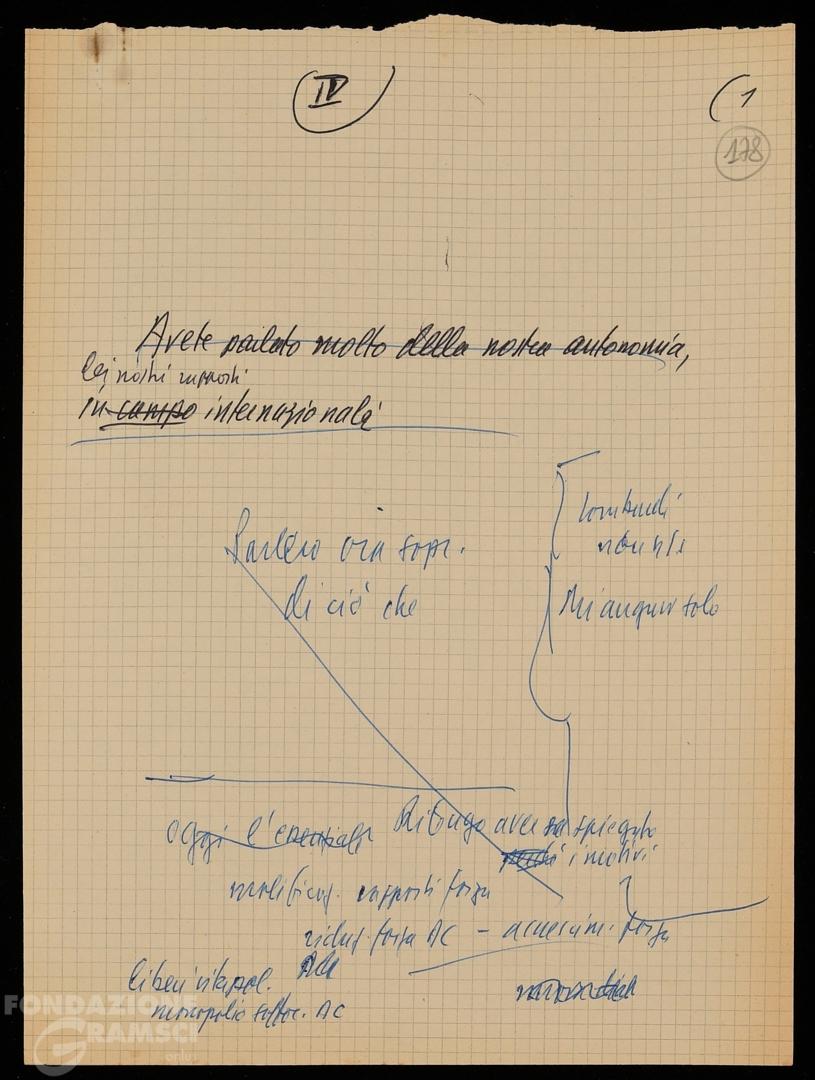 IV
(1
178
Avete parlato molto della nostra autonomia,
dei nostri rapporti
in campo internazionale
Parlerò ora sopr.
di ciò che
Lombardi
Mi auguro solo
oggi l'essenziale Ritengo aver spiegato
perché i motivi
modificaz. rapporti forza
riduz. forza AC – accrescim. forza
liberi
monopolio AC
FONDAZIONE
GRAMSCI
onlus